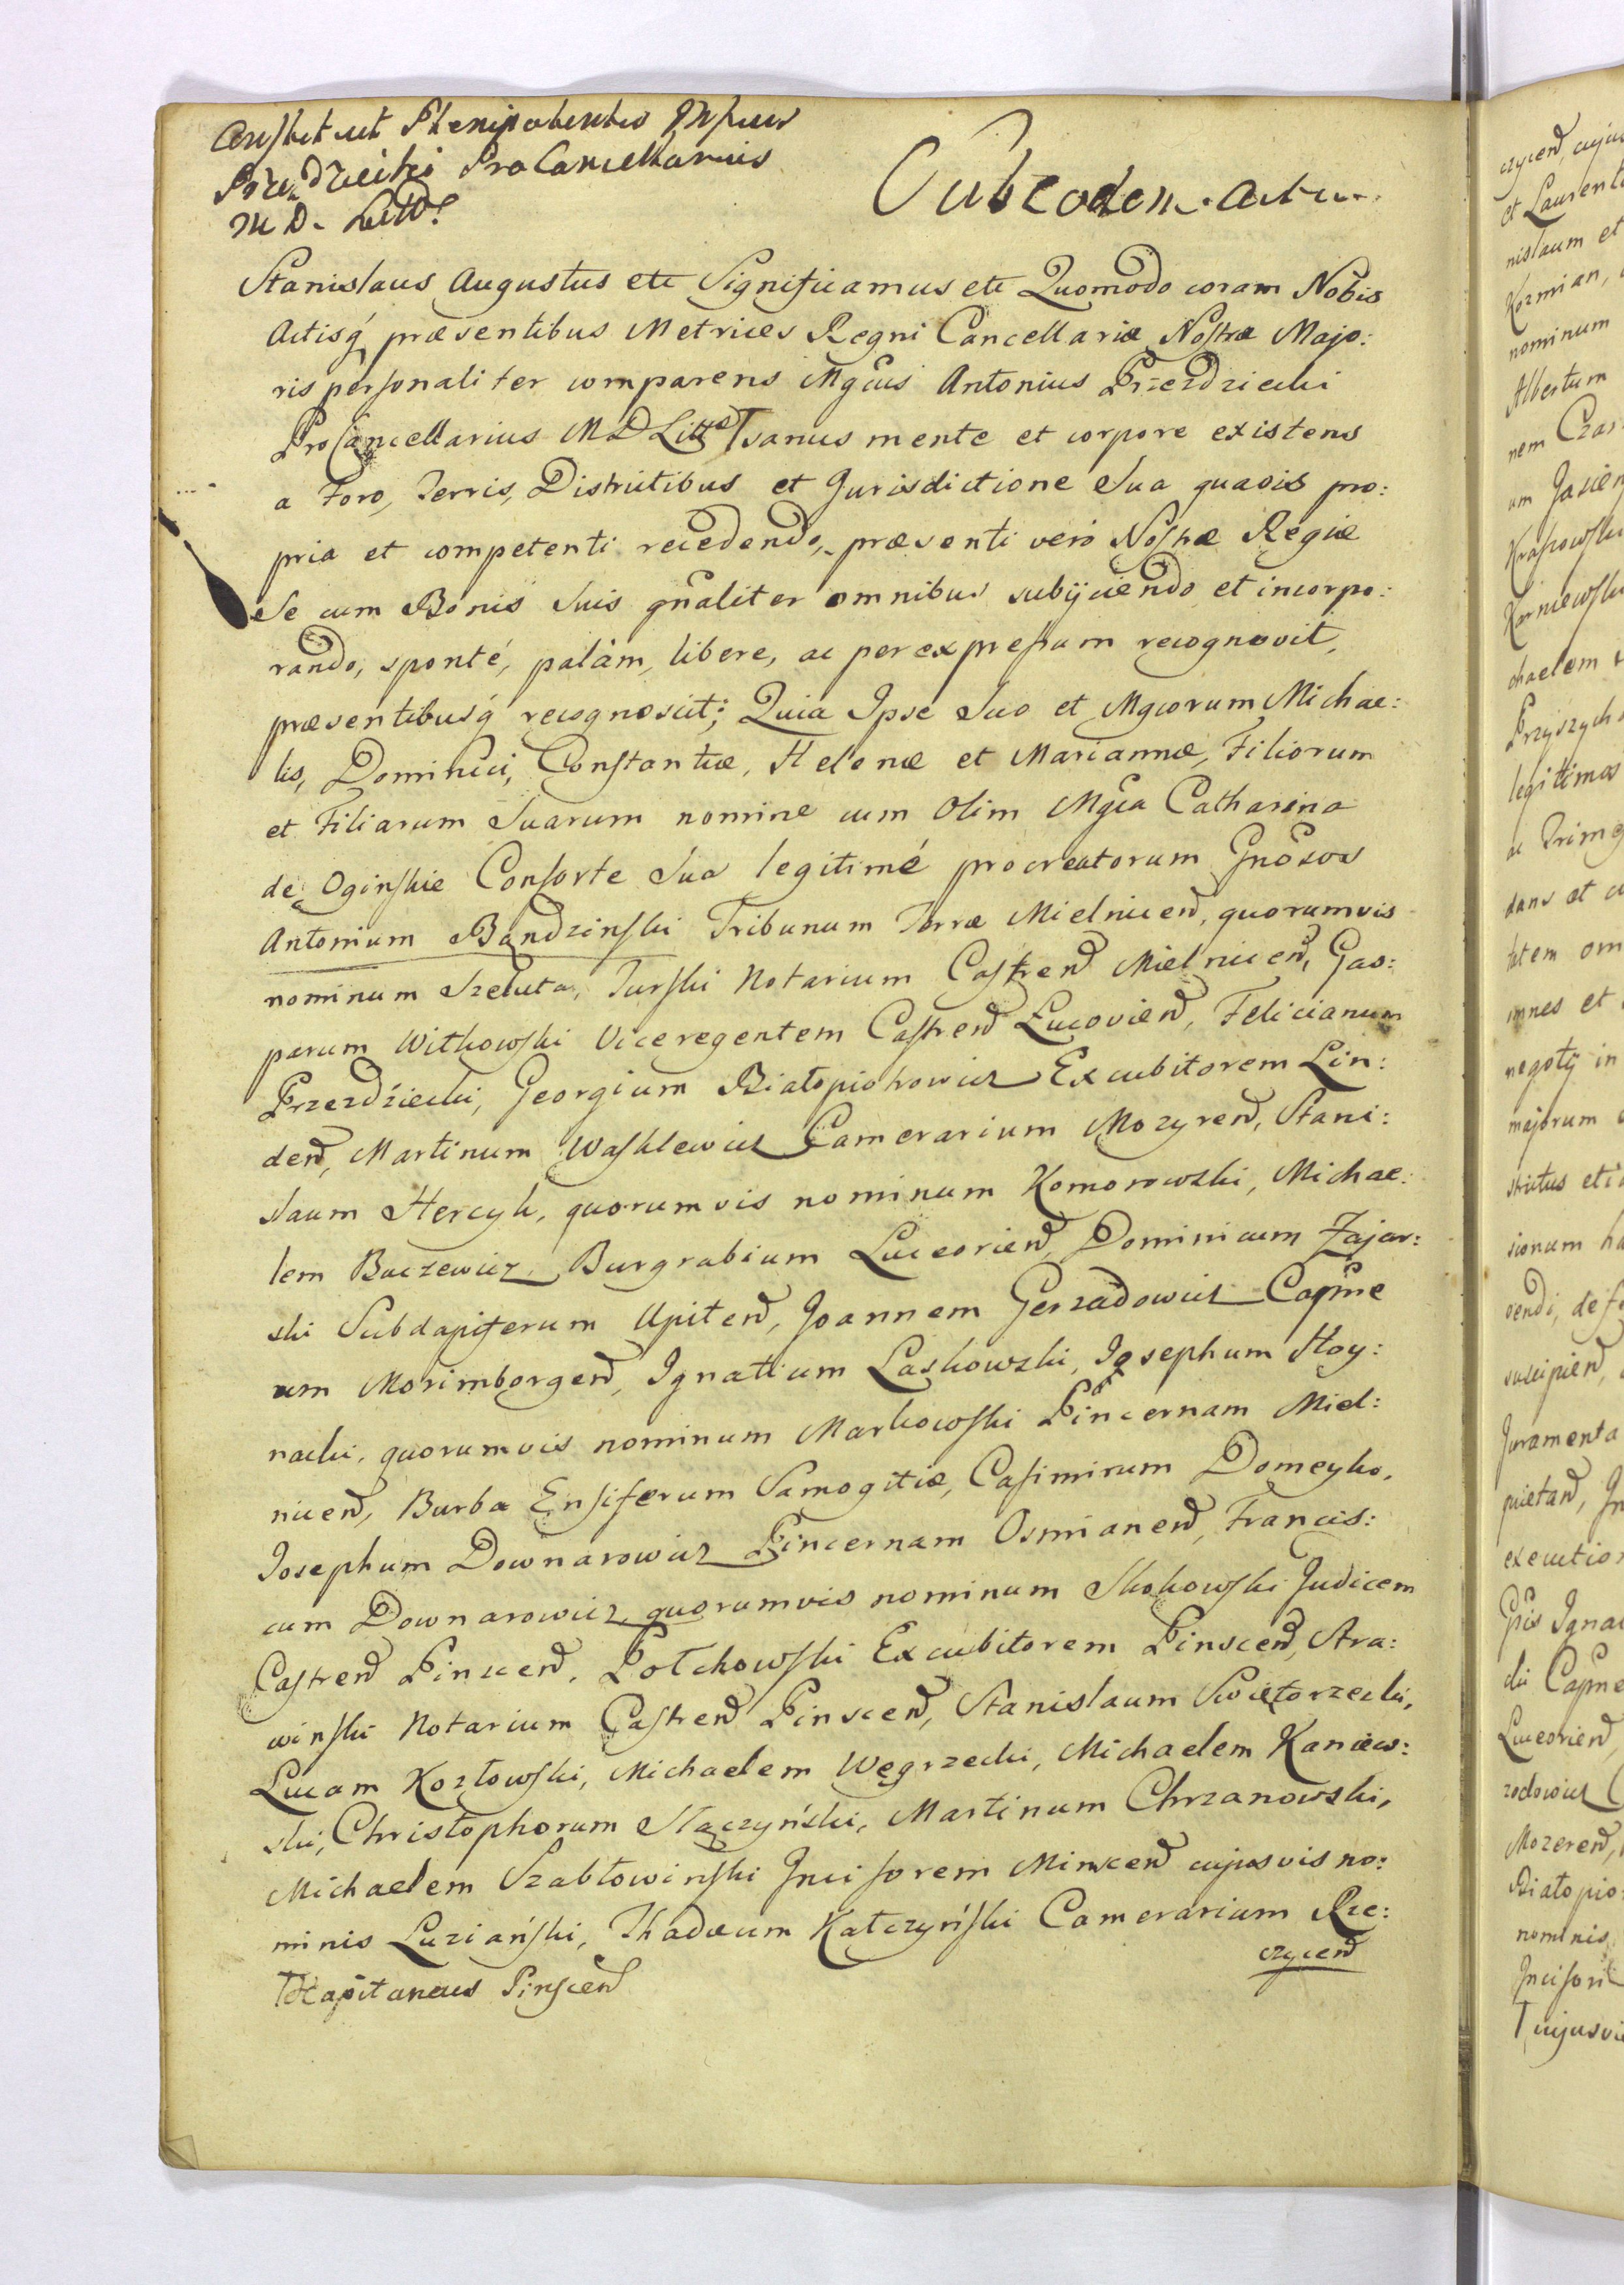 Constituit Plenipotentes
Przezdziecki ProCancellarius
M D. Littt
Sub eodem actu
Stanislaus Augustus etc Significamus etc Quomodo coram Nobis
Actisq́ præsentibus Metrices Regni Cancellariæ Nostræ Majo:
ris personaliter comparens Mgcus Antonius Przezdziecki
ProCancellarius M D Littt sanus mente et corpore existens
a Foro, Terris, Districtibus et Jurisdictione Sua quavis pro:
pria et competenti recedendo, præsenti vero Nostræ Regiæ
Se cum Bonis Suis gñaliter omnibus subijciendo et incorpo:
rando, sponté, palàm, libere, ac per expressum recognovit,
præsentibusq́ recognoscit; Quia Ipse Suo et Mgcorum Michae:
lis, Dominici, Constantiæ, Helenæ et Mariannæ, Filiorum
et Filiarum Suarum nomine cum Olim Mgca Catharina
de Oginskie Consorte Sua legitimé procreatorum Gnõsos
Antonium Bandzinski Tribunum Terræ Mielnicen, quorumvis
nominum Szeluta, Turski Notarium Castren Mielnicen, Gas:
parum Witkowski Viceregentem Castren Lucovien, Felicianum
Przezdziecki, Georgium Białopiotrowicz Excubitorem Lin:
den, Martinum Waszklewicz Camerarium Mozyren, Stani:
slaum Hercyk, quorumvis nominum Komorowski, Michae:
lem Baczewicz Burgrabium Luceorien, Dominicum Zajar:
ski Subdapiferum Upiten, Joannem Gerzadowicz Capne
um Morimborgen, Ignatium Laskowski, Josephum Stoy:
nacki, quorumvis nominum Markowski Pincernam Miel:
nicen, Burba Ensiferum Samogitiæ, Casimirum Domeyko,
Josephum Downarowicz Pincernam Osmianen, Francis:
cum Downarowicz, quorumvis nominum Skokowski Judicem
Castren Pinscen, Połchowski Excubitorem Pinscen, Stra:
winski Notarium Castren Pinscen, Stanislaum Swiętorzecki,
Lucam Kozłowski, Michaelem Węgrzecki, Michaelem Kaniew:
ski, Christophorum Słączyński, Martinum Chrzanowski,
Michaelem Szabłowinski Incisorem Minscen cujusvis no:
minis Luziański, Thadæum Kałczyński Camerarium Rze:
czycen
Capitaneus Pinscen
czycen, cujus
et Laurent
nislaum et
Kozmian,
nominum
Albertum
nem Czar
um Jasien
Krassowski
Karniewski
chaelem
Przyszych
legitimos
ac
dans et
tatem om
omnes et
negotÿ in
majorum
strictus eti
sionum
vendi, def
suscipien,
Juramenta
quietan,
execution
Gñis Igna
cki Capne
Luceorien,
zadowicz
Mozeren,
Białopio
nominis
Incisori
cujusvis